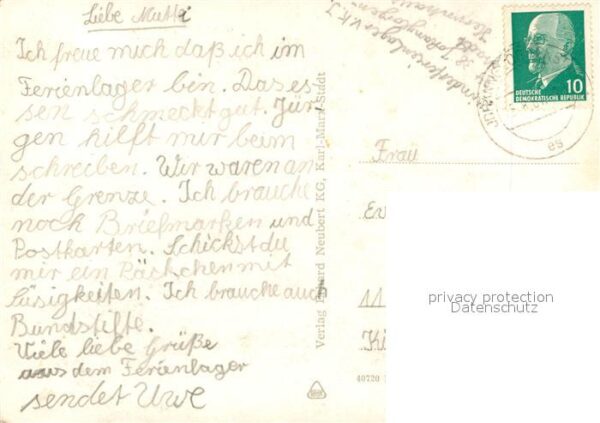 Liebe Mutti
Ich freue mich daß ich im
Ferienlager bin. Das es-
sen schmeckt gut. Jür-
gen hilft mir beim
schreiben. Wir waren an
der Grenze. Ich brauche
noch Briefmarken und
Postkarten. Schickst du
mir ein Päckchen mit
Süsigkeiten. Ich brauche auch
Bundstifte.
Viele liebe Grüße
aus dem Ferienlager
sendet Uwe
Verlag Erhard Neubert KG, Karl-Marx-Stadt
40720
DEUTSCHE
DEMOKRATISCHE REPUBLIK
10
Frau
Ev
11
privacy protection
Datenschutz